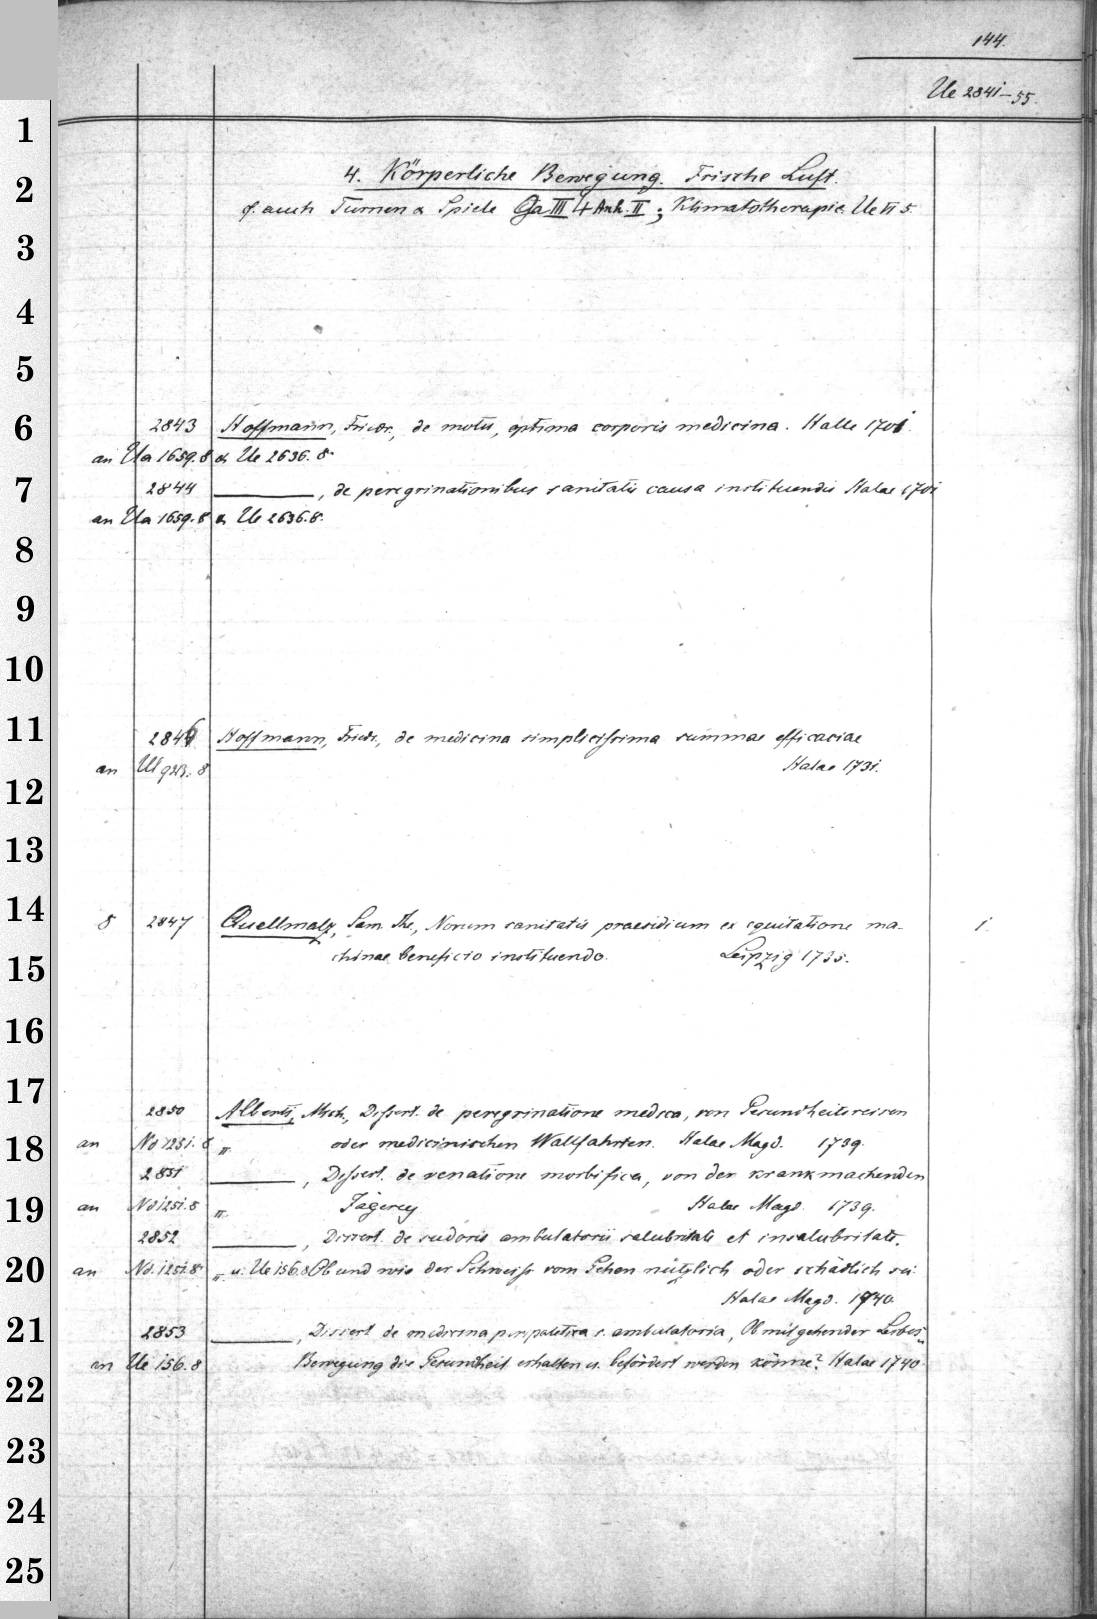 144.
Ue 2841-55.
4. Körperliche Bewegung. Frische Luft.
cf. auch Turnen & Spiele Ga III 4 Anh. II; Klimatotherapie Ue VI 5.
2843 Hoffmann, Friedr., de motu, optima corporis medicina. Halle 1701.
an Ua 1659.8 & Ue 2636.8.
2844 ———, de peregrinationibus sanitatis causa instituendis Halae 1701
an Ua 1659.8 & Ue 2636.8.
2846 Hoffmann, Friedr., de medicina simplicissima summae efficaciae
an Halae 1731.
8 2847 Quellmalz, Sam. Th., Novum sanitatis praesidium ex equitatione ma- 1
chinae beneficio instituendo. Leipzig 1735.
2850 Alberti, Mich., Dissert. de peregrinatione medica, von Gesundheitsreisen
an No 1251.8 oder medicinischen Wallfahrten. Halae Magd. 1739.
2851 ———, Dissert. de venatione morbifica, von der krankmachenden
an No 1251.8 Jägerey Halae Magd. 1739.
2852 ———, Dissert. de sudoris ambulatorii salubritate et insalubritate.
an No. 1251.8 u. Ue 156.8 Ob und wie der Schweiss vom Gehen nützlich oder schädlich sei.
Halae Magd. 1740.
2853 ———, Dissert. de medicina peripatetica s. ambulatoria, Ob mit gehender Leibes-
an Ue 156.8 Bewegung die Gesundheit erhalten u. befördert werden könne? Halae 1740.
1
2
3
4
5
6
7
8
9
10
11
12
13
14
15
16
17
18
19
20
21
22
23
24
25